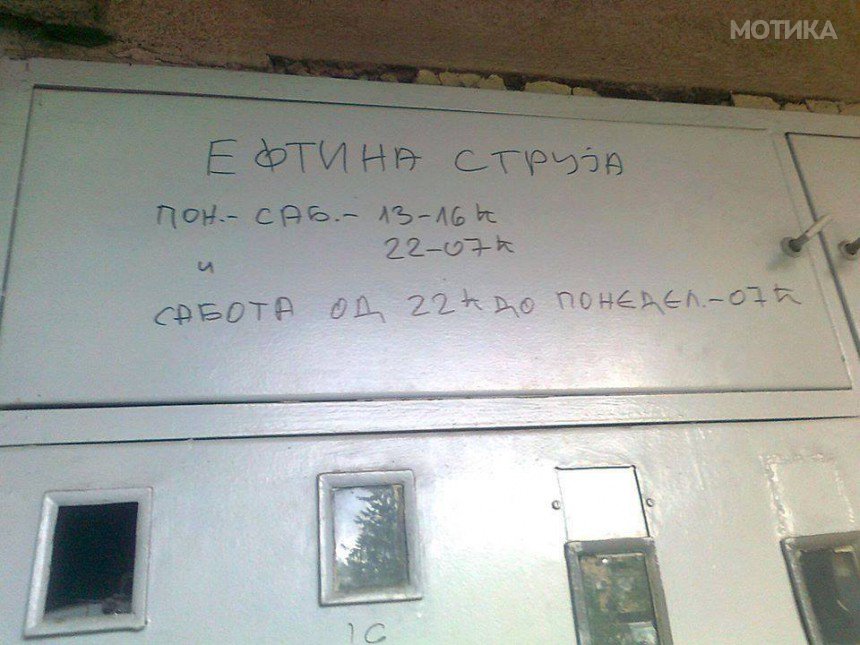 МОТИКА
ЕФТИНА СТРУЈА
ПОН.- САБ.- 13-16 h
22-07 h
и
САБОТА ОД 22 h ДО ПОНЕДЕЛ.-07 h
1C